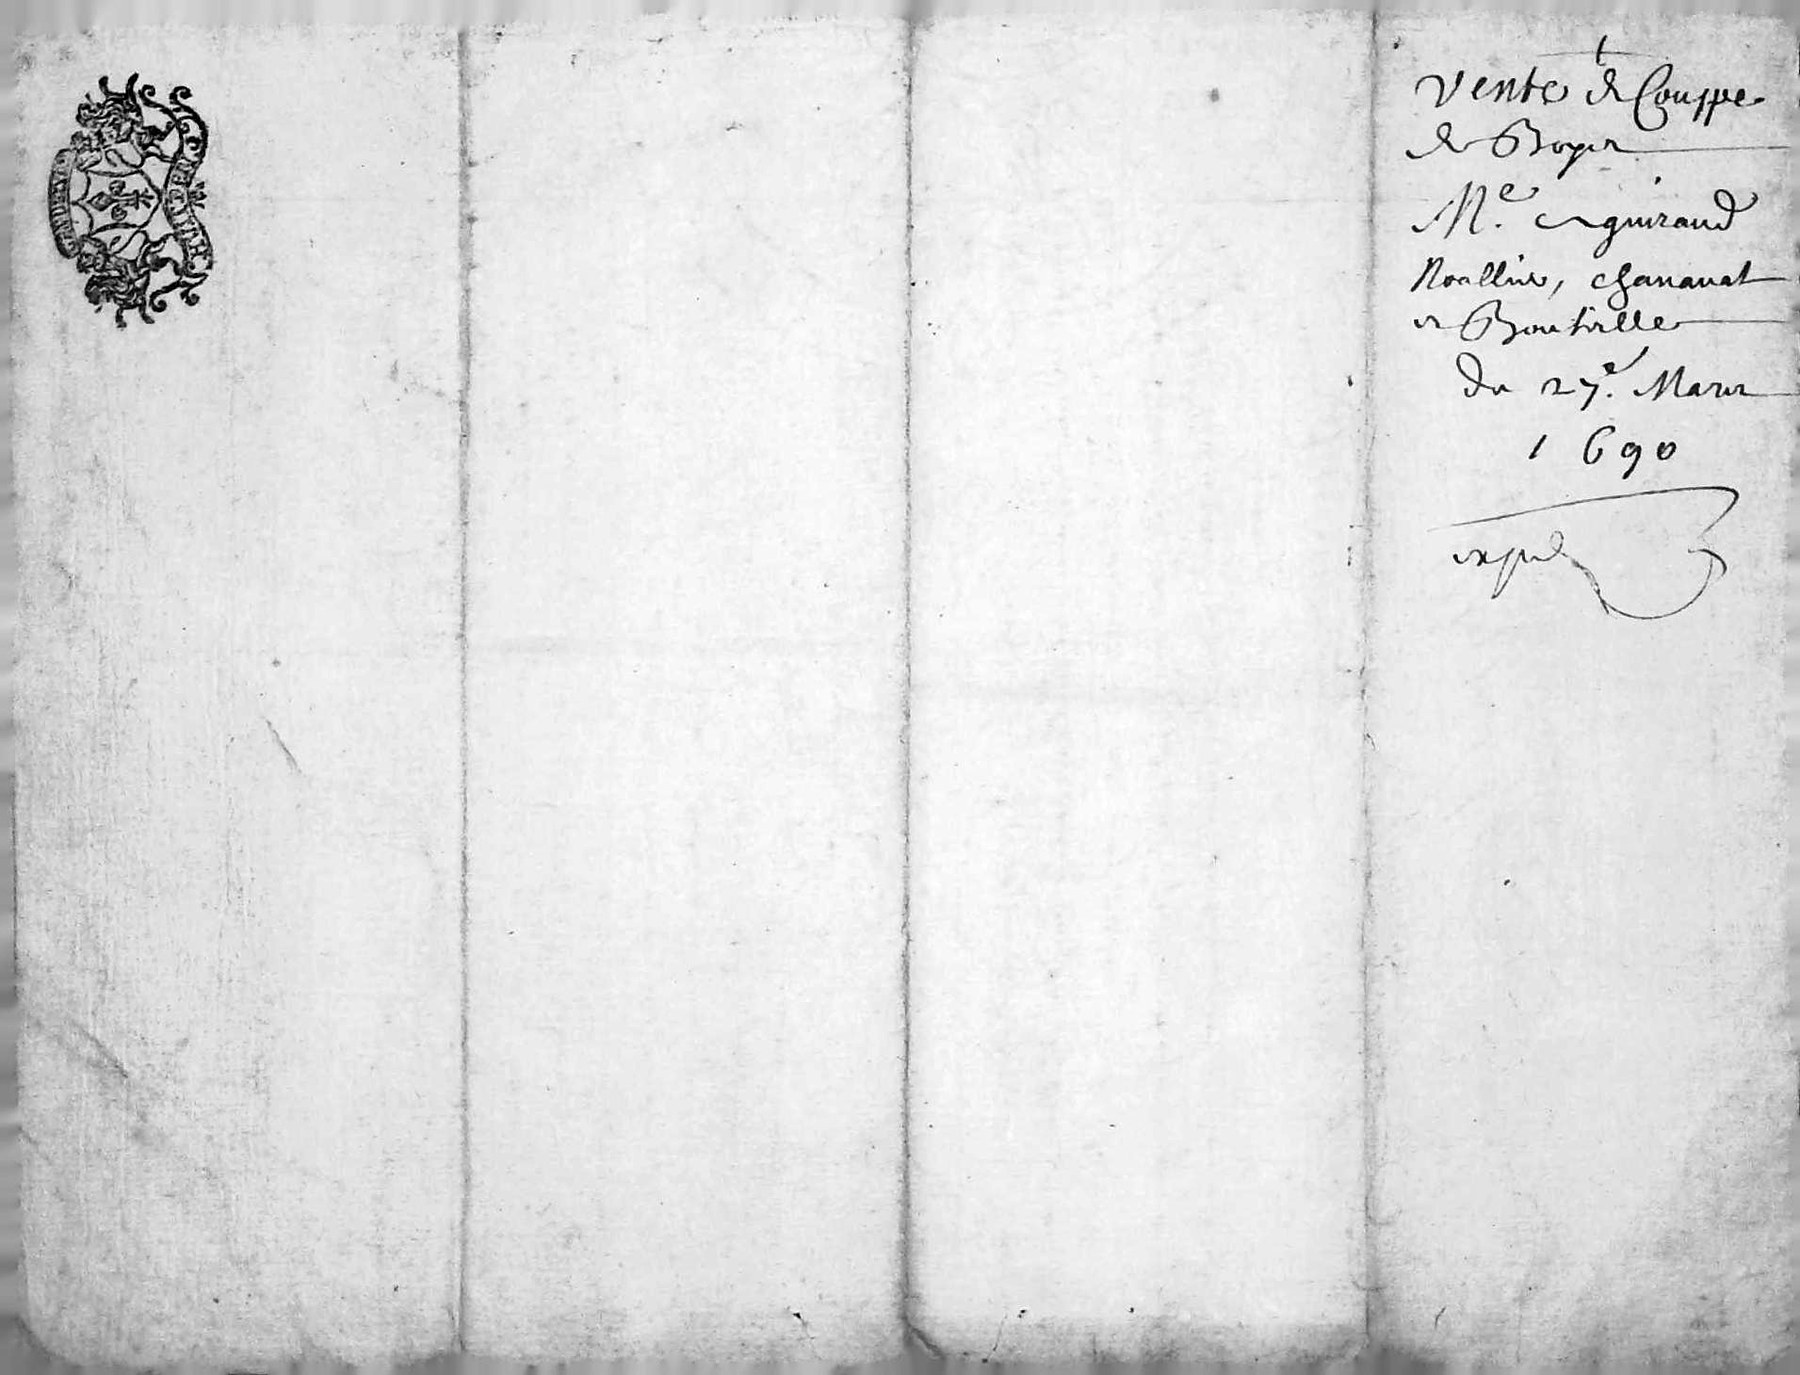 Vente de Couppe
de Boyer
Me. Aguiraud
Noallier, chanavat
et Boutville
Du 27e. Mars
1690
expéd